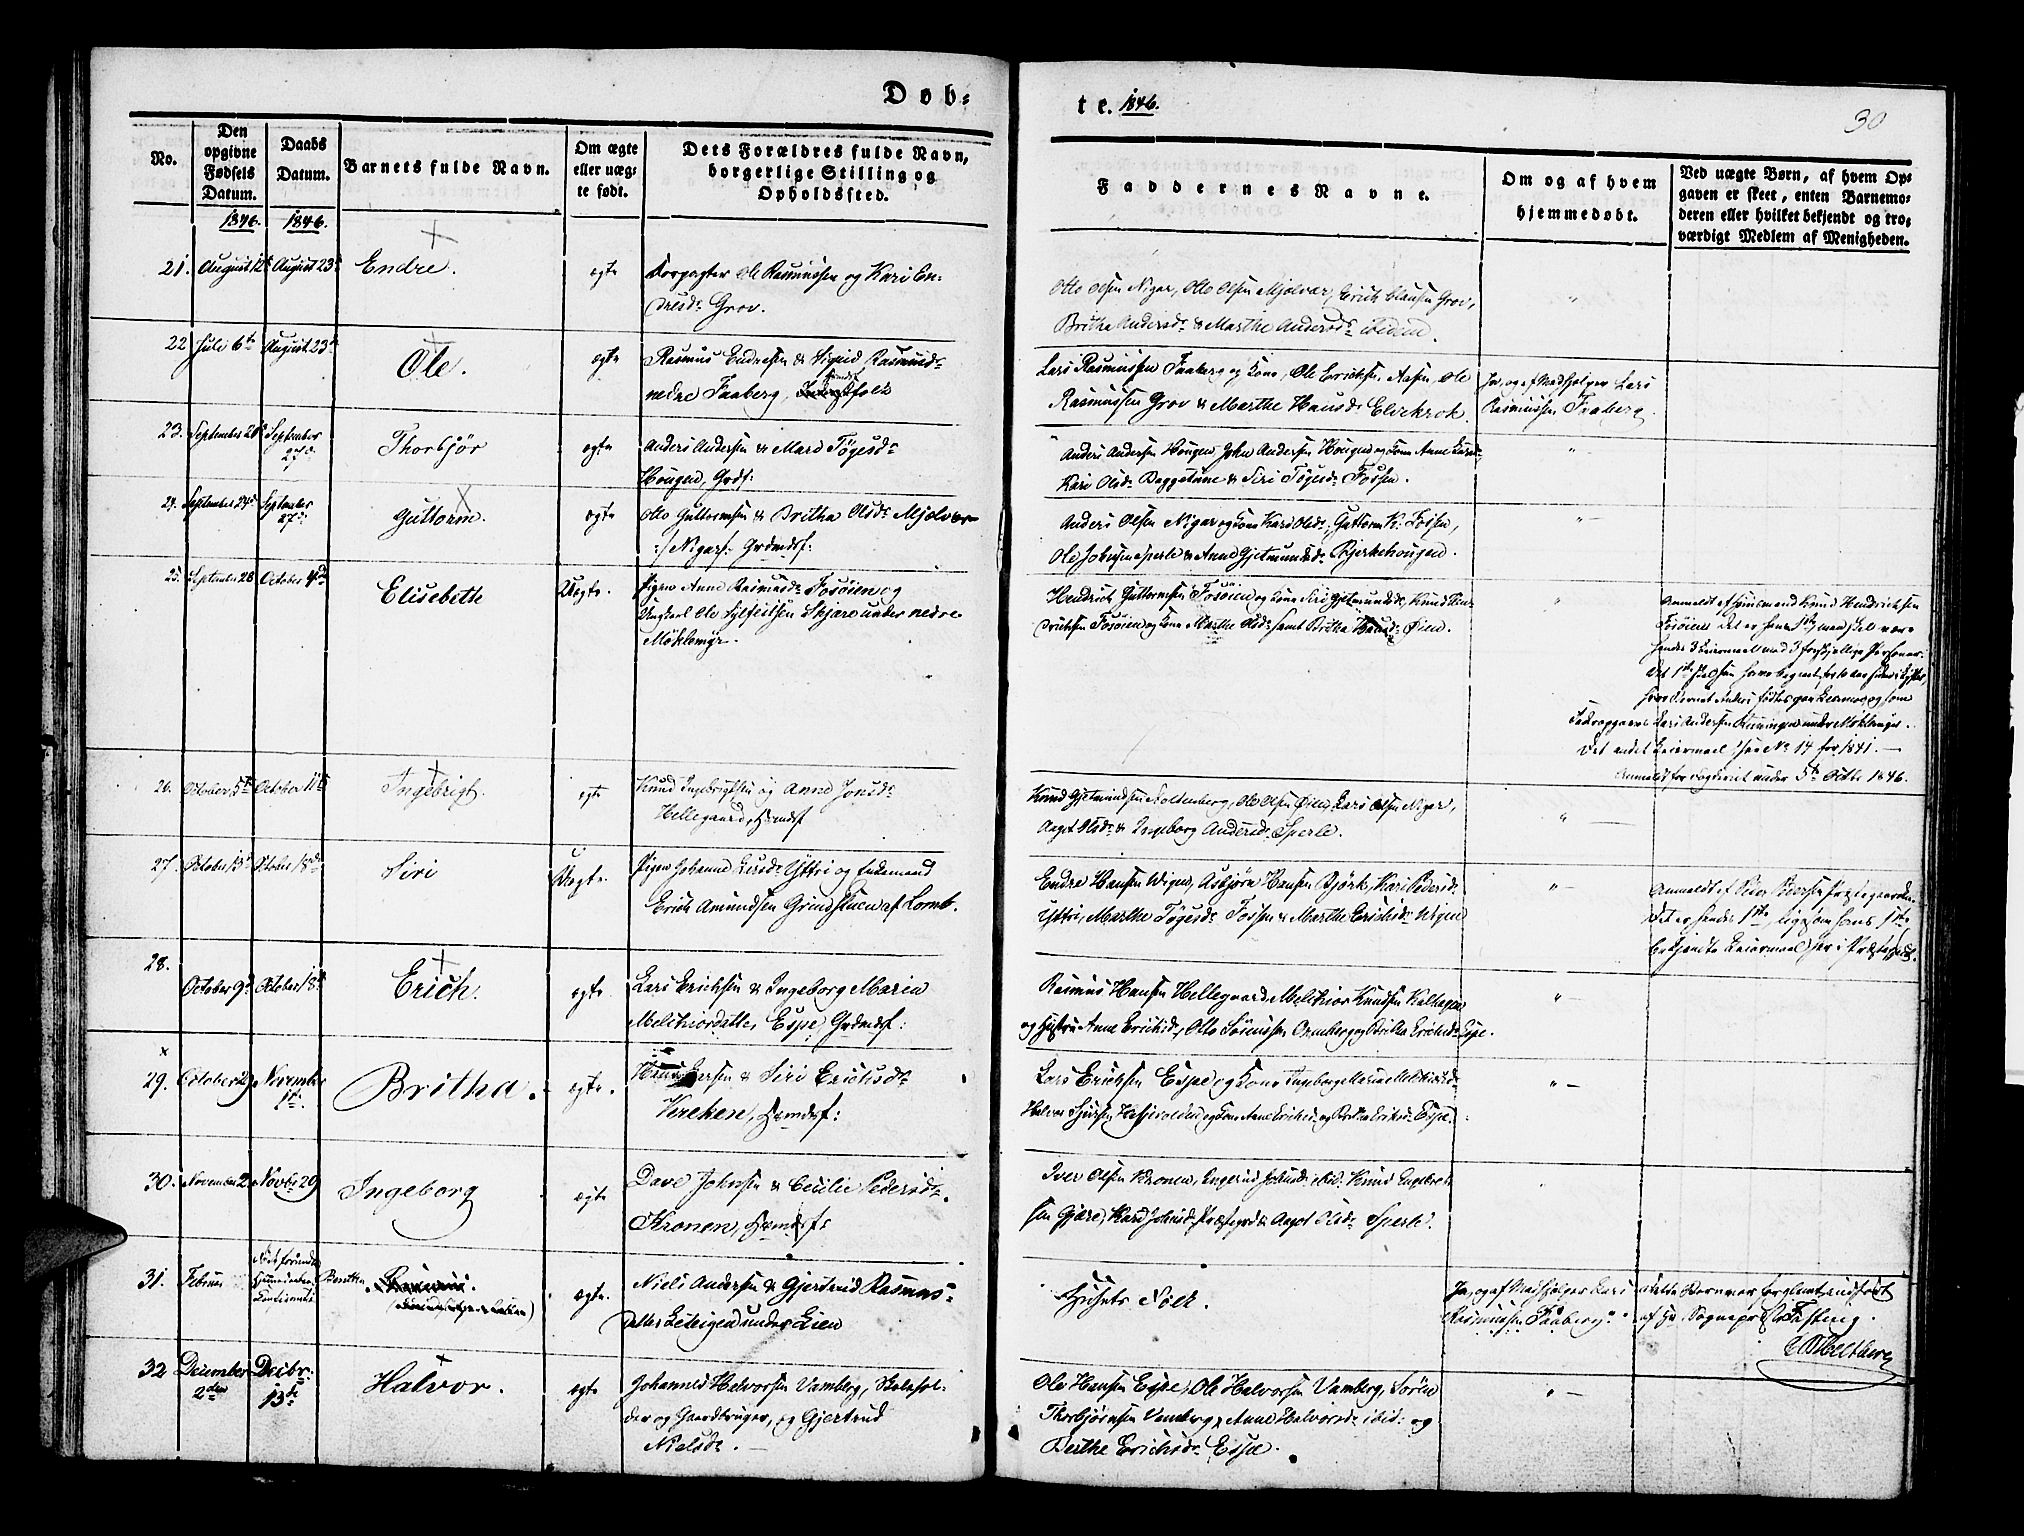 Døb-
te. 1846.
30
No.
Den opgivne Fødsels Datum.
Daabs Datum.
Barnets fulde Navn.
Om ægte eller uæg-
te født.
Dets Forældres fulde Navn,
borgerlige Stilling og
Opholdssted.
Faddernes Navne.
Om og af hvem
hjemmedøbt.
Ved uægte Børn, af hvem Op-
gaven er skeet, enten Barnemo-
deren eller hvilket bekjendt og tro-
værdigt Medlem af Menigheden.
1846. 1846.
21. August 12 August 23 Endre. ægte
Forpagter Ole Rasmussen og Kari En-
dresdr Grov.
Otto Olsen Nigar, Otto Olsen Mjølvær, Erich Clausen Grov,
Britha Andersdr & Marthe Andersdr ibidem.
22 Juli 6te August 23 Ole. ægte
Rasmus Endresen & Sigrid Rasmusdr
nedre Faaberg, folk
Lars Rasmussen Faaberg og Kone, Ole Erichsen Aasen, Ole
Rasmussen Grov & Marthe Hansdr Elvekrok.
Ja, og af Medhjælper Lars
Rasmussen Faaberg.
23. September 20 September 27de Thorbjør ægte
Anders Andersen & Mari Tøgesdr
Hougen, Grdf:
Anders Andersen Hougen, John Andersen Hougen og Kone Anne
Kari Olsdr Baggetune & Siri Tøgesdr Fossen.
24. September 24 September 27 Guttorm. ægte
Otto Guttormsen & Britha Olsdr Mjølver
:/ Nigar :/ Grdmdsf:
Anders Olsen Nigar og Kone Kari Olsdr, Guttorm K. Fossen,
Ole Johnsen Sperle & Anne Gjetmundsdr Bjerkehougen.
25. September 28 October 4de Elisebeth Uægte.
Pigen Anne Rasmusdr Fosøien og
Ungkarl Ole Sjulseth Skjare under nedre
Møklemyr.
Hendrich Guttormsen Fosøien og Kone Siri Gjetmundsdr, Knud Hen-
drichsen Fosøien og Kone Marthe Olsdr samt Britha Hansdr Øien.
Anmeldt af Huusmand Knud Hendrichsen
Fosøien. Det er hans 1ste, men skal være
hendes 3 Leiermaal med 3 forskjellige Personer.
Lars Andersen under Moklevigel.
Det andet Leiermaal see No 14 for 1841.
Anmeldt for Fogderiet under 5te Octbr 1846.
26. October 5te October 11te Ingebrigt. ægte
Knud Ingebrigtsen og Anne Jonsdr
Hellegaard, Hmdsf
Knud Gjetmundsen Holtenberg, Ole Olsen Øien, Lars Olsen Nigar,
Aagot Olsdr & Ingeborg Andersdr Sperle.
27. October 13 October 18de Siri Uægte.
Pigen Johanne Larsdr Yttri og Enkemand
Erich Amundsen Grindstuen af Lomb.
Endre Hansen Wigen, Asbjørn Hansen Bjørk, Kari Pedersdr
Yttri, Marthe Tøgesdr Fossen & Marthe Erichsdr Wigen
Anmeldt af Peder Præstegaarden.
Det er hendes 1ste, ligesom hans 1ste
bekjendte Leiermaal her i Præstegjeld.
28.
October 9 October 18 Erich. ægte
Lars Erichsen & Ingeborg Maria
Melkiordatter, Espe, Grdmdsf:
Rasmus Hansen Hellegaard, Melchior Knudsen Kalhagen
og Hustru Anne Erichsdr, Otto Sørensen Ormberg og Britha Erichsdr Espe.
29. October 29 November 1ste Britha. ægte.
Hans Larsen & Siri Erichsdr
Kreken, Hmdsf:
Lars Erichsen Espe og Kone Ingeborg Maria Melkiorsdr
Halvor og Kone Anne Erichsdr og Britha Erichsdr Espe.
30. November 2 Novbr 29 Ingeborg ægte
Dave Johnsen & Cecilie Pedersdr.
Kronen, Hmdsf:
Iver Olsen Kronen, Ingerid Johnsdr ibid. Knud Engebret-
sen Gjære, Kari Johnsdr Præstegrd & Aagot Olsdr Sperle.
31. Februar Beretha ægte.
Niels Andersen & Gjertrud Rasmus-
datter Leteigen under Lien
Husets Folk.
Ja, og af Medhjelper Lars
Rasmussen Faaberg.
dette Barn var forglemt indført
af Hr Sognepr Fasting.
32 December 2den Decbr: 13de Halvor. ægte
Johannes Halvorsen Vamberg, Skolehol-
der og Gaardbruger, og Gjertrud
Nielsdr.
Ole Hansen Espe, Ole Halvorsen Vamberg, Søren
Thorbjørnsen Vamberg, Anne Halvorsdr ibid: og
Berthe Erichsdr Espe.